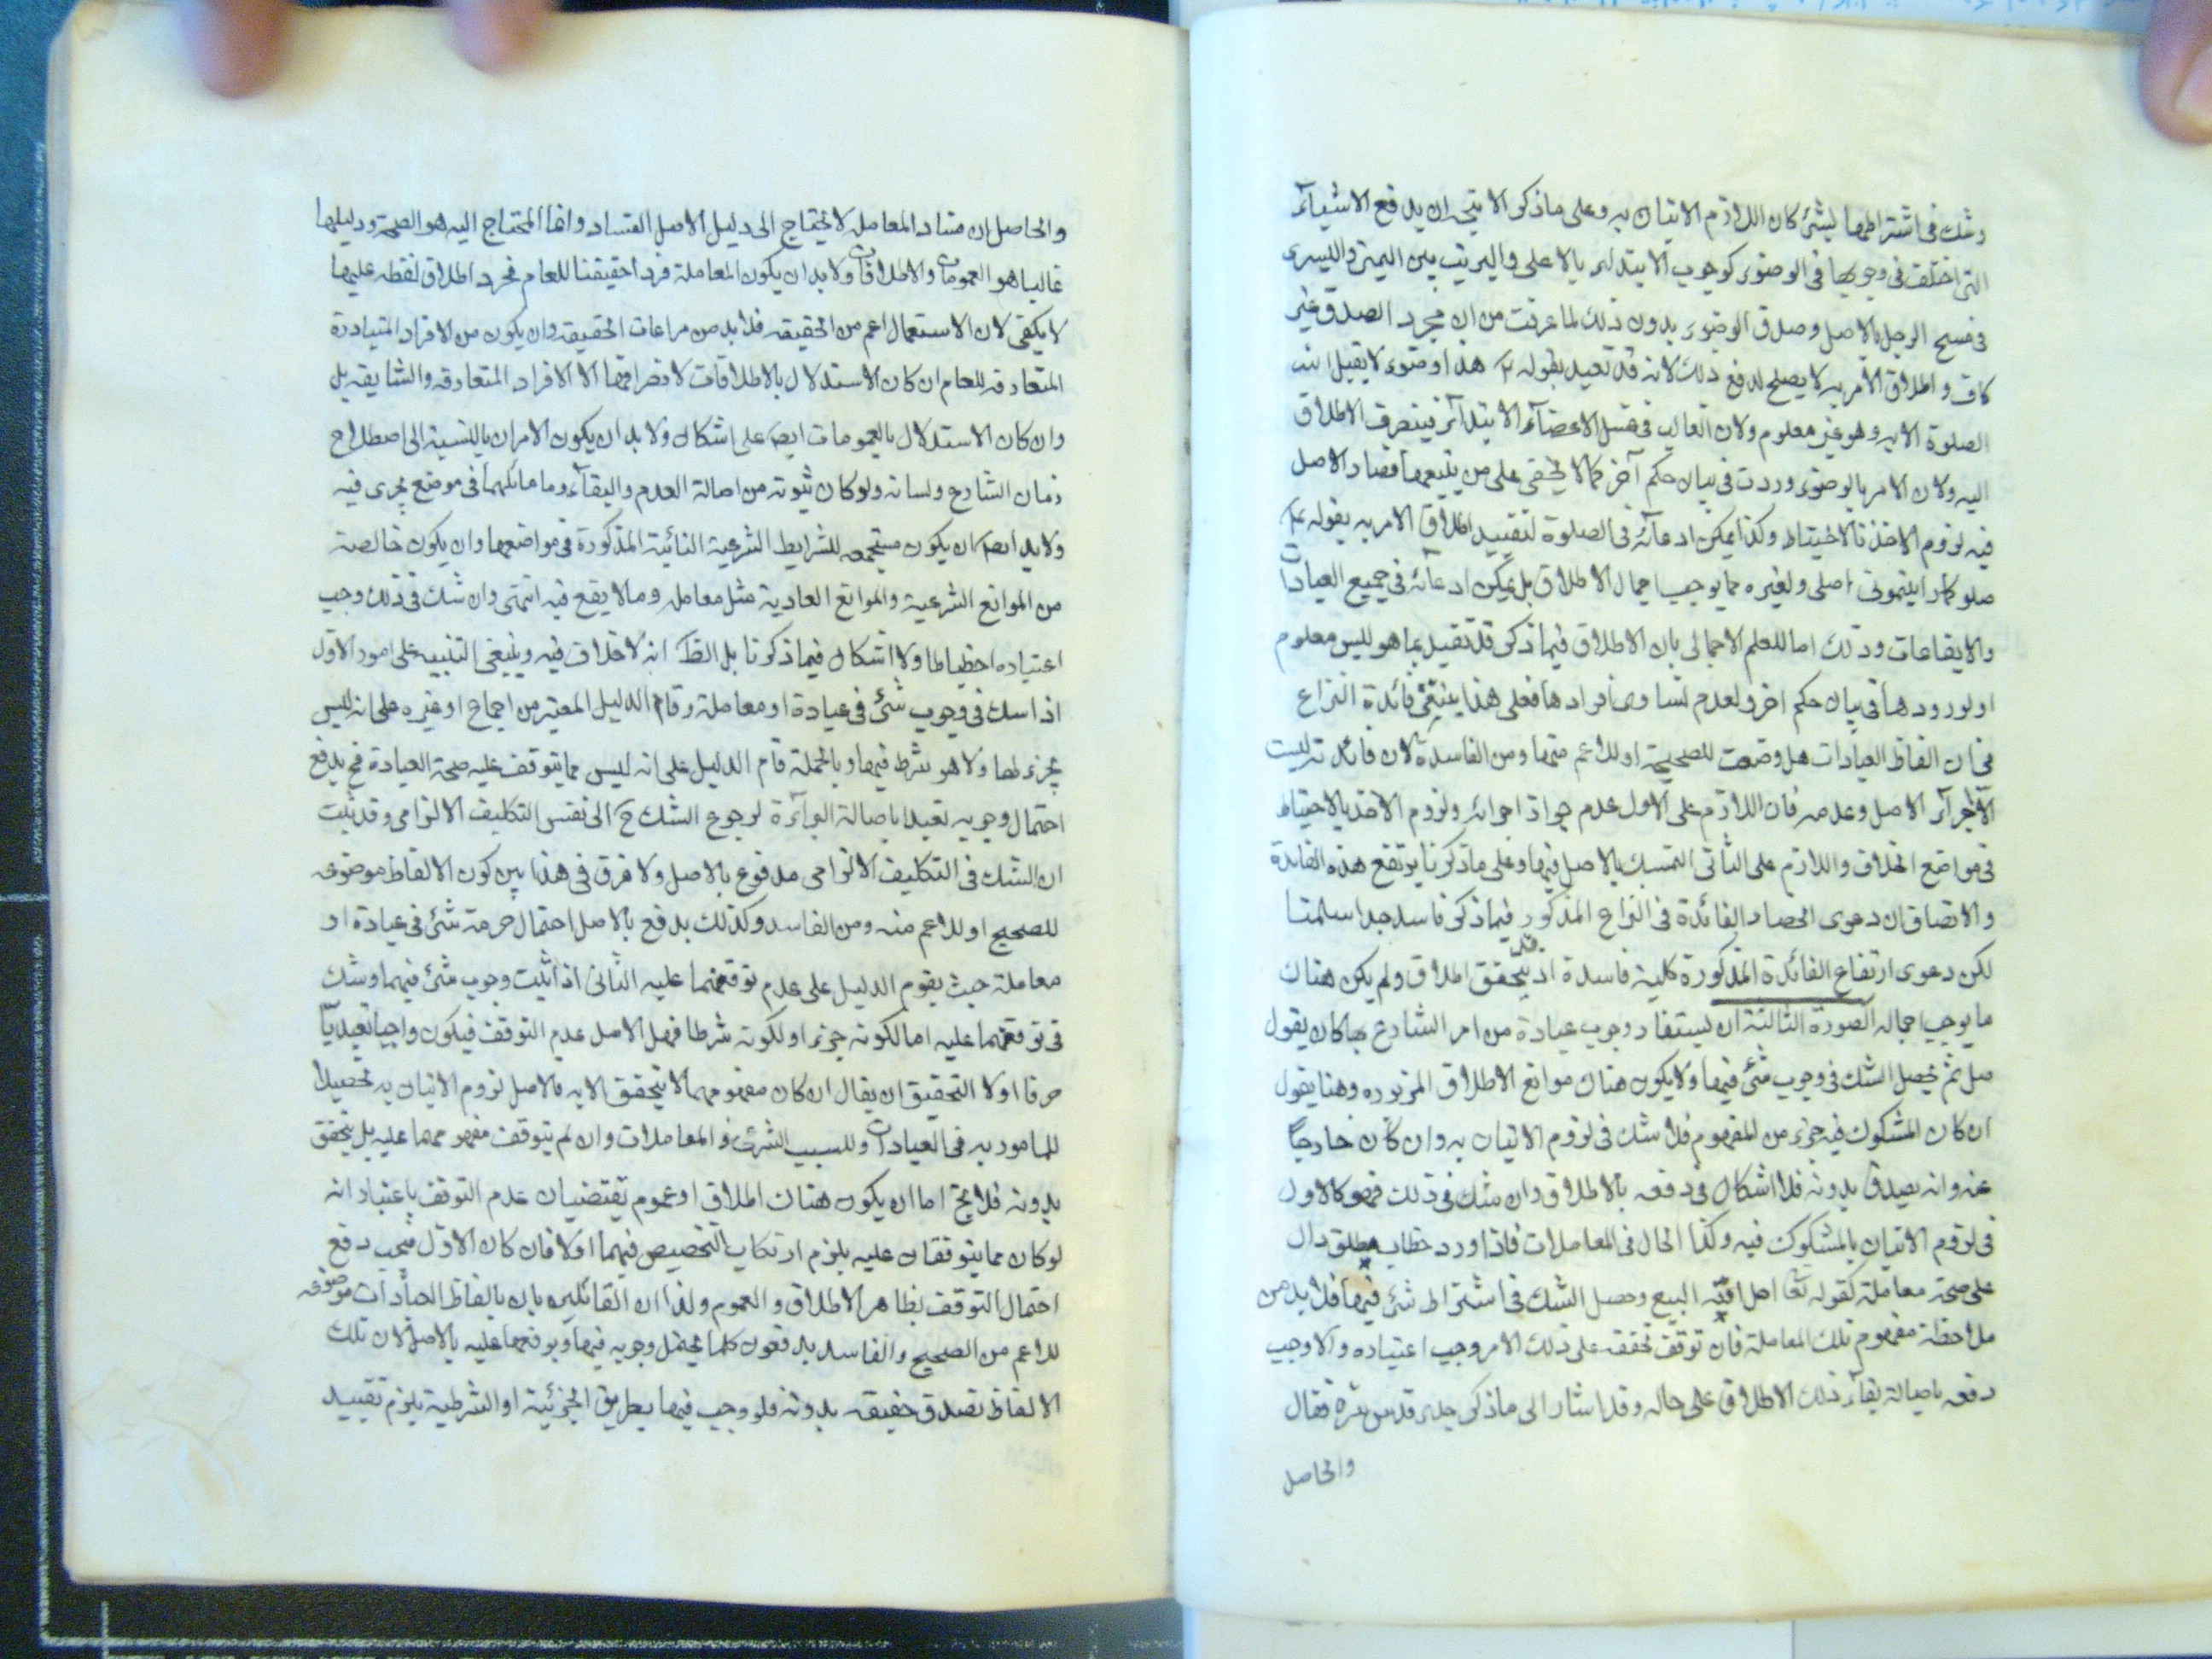 وشك فى اشتراطها بشئ كان اللازم الاتيان به وعلى ما ذكر لا يتجه ان يدفع الاشيآء
التى اختلف فى وجوبها فى الوضوء كوجوب الابتدآء بالاعلى والترتيب بين اليمنى واليسرى
فى مسح الرجل بالاصل وصدق الوضوء بدون ذلك لما عرفت من ان مجرد الصدق غير
كاف و اطلاق الامر به لا يصلح لدفع ذلك لانه قد تقيد بقوله ع هذا وضوء لا يقبل الله
الصلوة الا به وهو غير معلوم ولان الغالب فى غسل الاعضآء الابتدآء فينصرف الاطلاق
اليه ولان الامر بالوضوء وردت فى بيان حكم آخر كما لا يخفى على من يتبعها فصار الاصل
فيه لزوم الاخذ بالاحتياط وكذا يمكن ادعائه فى الصلوة لتقييد اطلاق الامر به بقوله ع
صلوا كما رايتمونى اصلى ولغيره مما يوجب اجمال الاطلاق بل يمكن ادعائه فى جميع العبادات
والايقاعات وذلك اما للعلم الاجمالى بان الاطلاق فيما ذكر قد تقيد بما هو ليس معلوم
او لورودها فى بيان حكم اخر ولعدم تساوى افرادها فعلى هذا ينتفى فائدة النزاع
فى ان الفاظ العبادات هل وضعت للصحيحة او للاعم منها ومن الفاسدة لان فائدته ليست
الا اجرآء الاصل وعدمه فان اللازم على الاول عدم جواز اجرائه ولزوم الاخذ بالاحتياط
فى مواضع الخلاف واللازم على الثانى التمسك بالاصل فيها وعلى ما ذكرنا يرتفع هذه الفائدة
والانصاف ان دعوى انحصار الفائدة فى النزاع المذكور فيما ذكر فاسد جدا سلمنا
لكن دعوى ارتفاع الفائدة المذكورة كلية فاسدة اذ قد يتحقق اطلاق ولم يكن هناك
ما يوجب اجماله الصورة الثالثة ان يستفاد وجوب عبادة من امر الشارع بها كان يقول
صل ثم يحصل الشك فى وجوب شئ فيها ولا يكون هناك موانع الاطلاق المزبوره وهنا يقول
ان كان المشكوك فيه جزء من المفهوم فلا شك فى لزوم الاتيان به وان كان خارجا
عنه وانه يصدق بدونه فلا اشكال فى دفعه بالاطلاق وان شك فى ذلك فهو كالاول
فى لزوم الاتيان بالمشكوك فيه وكذا الحال فى المعاملات فاذا ورد خطاب مطلق دال
على صحة معاملة كقوله تعا احل الله البيع وحصل الشك فى اشتراط شئ فيها فلا بد من
ملاحظة مفهوم تلك المعاملة فان توقف تحققه على ذلك الامر وجب اعتباره والا وجب
دفعه باصالة بقآء ذلك الاطلاق على حاله وقد اشار الى ما ذكر جدى قدس سره فقال
والحاصل
والحاصل ان فساد المعاملة لا يحتاج الى دليل الاصل الفساد وانما المحتاج اليه هو الصحة ودليلها
غالبا هو العمومات والاطلاقات ولا بد ان يكون المعاملة فردا حقيقنا للعام فمجرد اطلاق لفظه عليها
لا يكفى لان الاستعمال اعم من الحقيقه فلا بد من مراعات الحقيقه وان يكون من الافراد المتبادرة
المتعارفه للعام ان كان الاستدلال بالاطلاقات لانصرافها الا الافراد المتعارفه والشايقه بل
وان كان الاستدلال بالعمومات ايضا على اشكال ولا بد ان يكون الامران بالنسبة الى اصطلاح
زمان الشارع ولسانه ولو كان ثبوته من اصالة العدم والبقآء وما ماثلهما فى موضع يجرى فيه
ولا بد ايضا ان يكون مستجمعه للشرايط الشرعية الثابتة المذكورة فى مواضعها وان يكون خالصة
من الموانع الشرعية والموانع العادية مثل معامله وما لا يقع فيه انتهى وان شك فى ذلك وجب
اعتباره احتياطا ولا اشكال فيما ذكرنا بل الظ انه لا خلاف فيه وينبغى التنبيه على امور الاول
اذا شك فى وجوب شئ فى عبادة او معاملة وقام الدليل المعتبر من اجماع او غيره على انه ليس
بجزء لها ولا هو بشرط فيها وبالجملة قام الدليل على انه ليس مما يتوقف عليه صحة العبادة فح يدفع
احتمال وجوبه تعبدا باصالة البرآءة لرجوع الشك ح الى نفس التكليف الالزامى وقد ثبت
ان الشك فى التكليف الالزامى مدفوع بالاصل ولا فرق فى هذا بين كون الالفاظ موضوعه
للصحيح او للاعم منه ومن الفاسد وكذلك يدفع بالاصل احتمال حرمة شئ فى عبادة او
معاملة حيث يقوم الدليل على عدم توقفهما عليه الثانى اذا ثبت وجوب شئ فيهما وشك
فى توقفهما عليه اما لكونه جزء او لكونه شرطا فهل الاصل عدم التوقف فيكون واجبا تعبديا
صرفا او لا التحقيق ان يقال ان كان مفهومهما لا يتحقق الا به فالاصل لزوم الاتيان به تحصيلا
للمامور به فى العبادات وللسبب الشرعى فى المعاملات وان لم يتوقف مفهومهما عليه بل يتحقق
بدونه فلا يخ اما ان يكون هناك اطلاق او عموم يقتضيان عدم التوقف باعتبار انه
لو كان مما يتوقفان عليه يلزم ارتكاب التخصيص فيهما او لا فان كان الاول فيجب دفع
احتمال التوقف بظاهر الاطلاق والعموم ولذا ان القائلين بان بالفاظ العبادات موضوعه
للاعم من الصحيح والفاسد يدفعون كلما يحتمل وجوبه فيها وتوقفها عليه بالاصل لان تلك
الالفاظ تصدق حقيقه بدونه فلو وجب فيها بطريق الجزئية او الشرطية يلزم تقييد